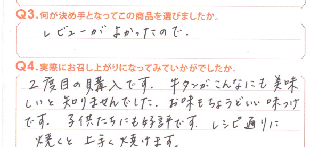 Q3.何が決め手となってこの商品を選びましたか。
レビューがよかったので。
Q4.実際にお召し上がりになってみていかがでしたか。
2度目の購入です。牛タンがこんなにも美味
しいと知りませんでした。お味もちょうどいい味つけ
です。子供たちにも好評です。レシピ通りに
焼くと上手く焼けます。